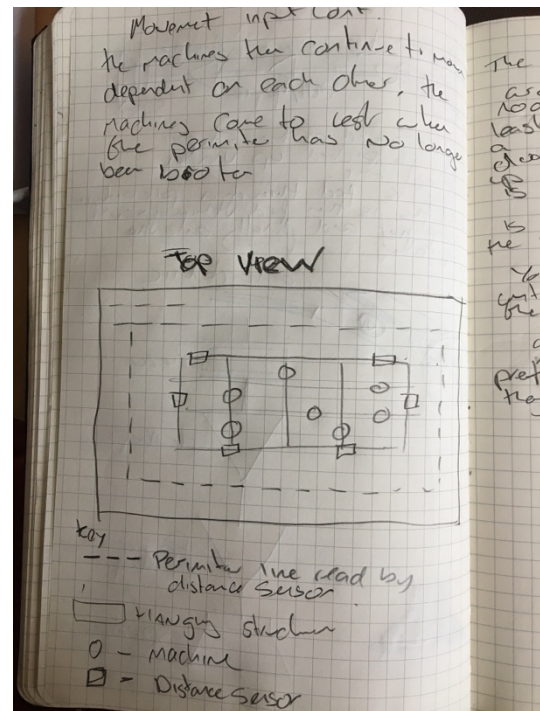 Movemet input cont.
the machines then continue to move
dependent on each other, the
machines come to rest when
the perimiter has no longer
been broten
Top View
key
--- - Perimiter line read by
distance sensor
Hanging structure
O - Machine
- Distance sensor
The
least
a
is
the
the
the